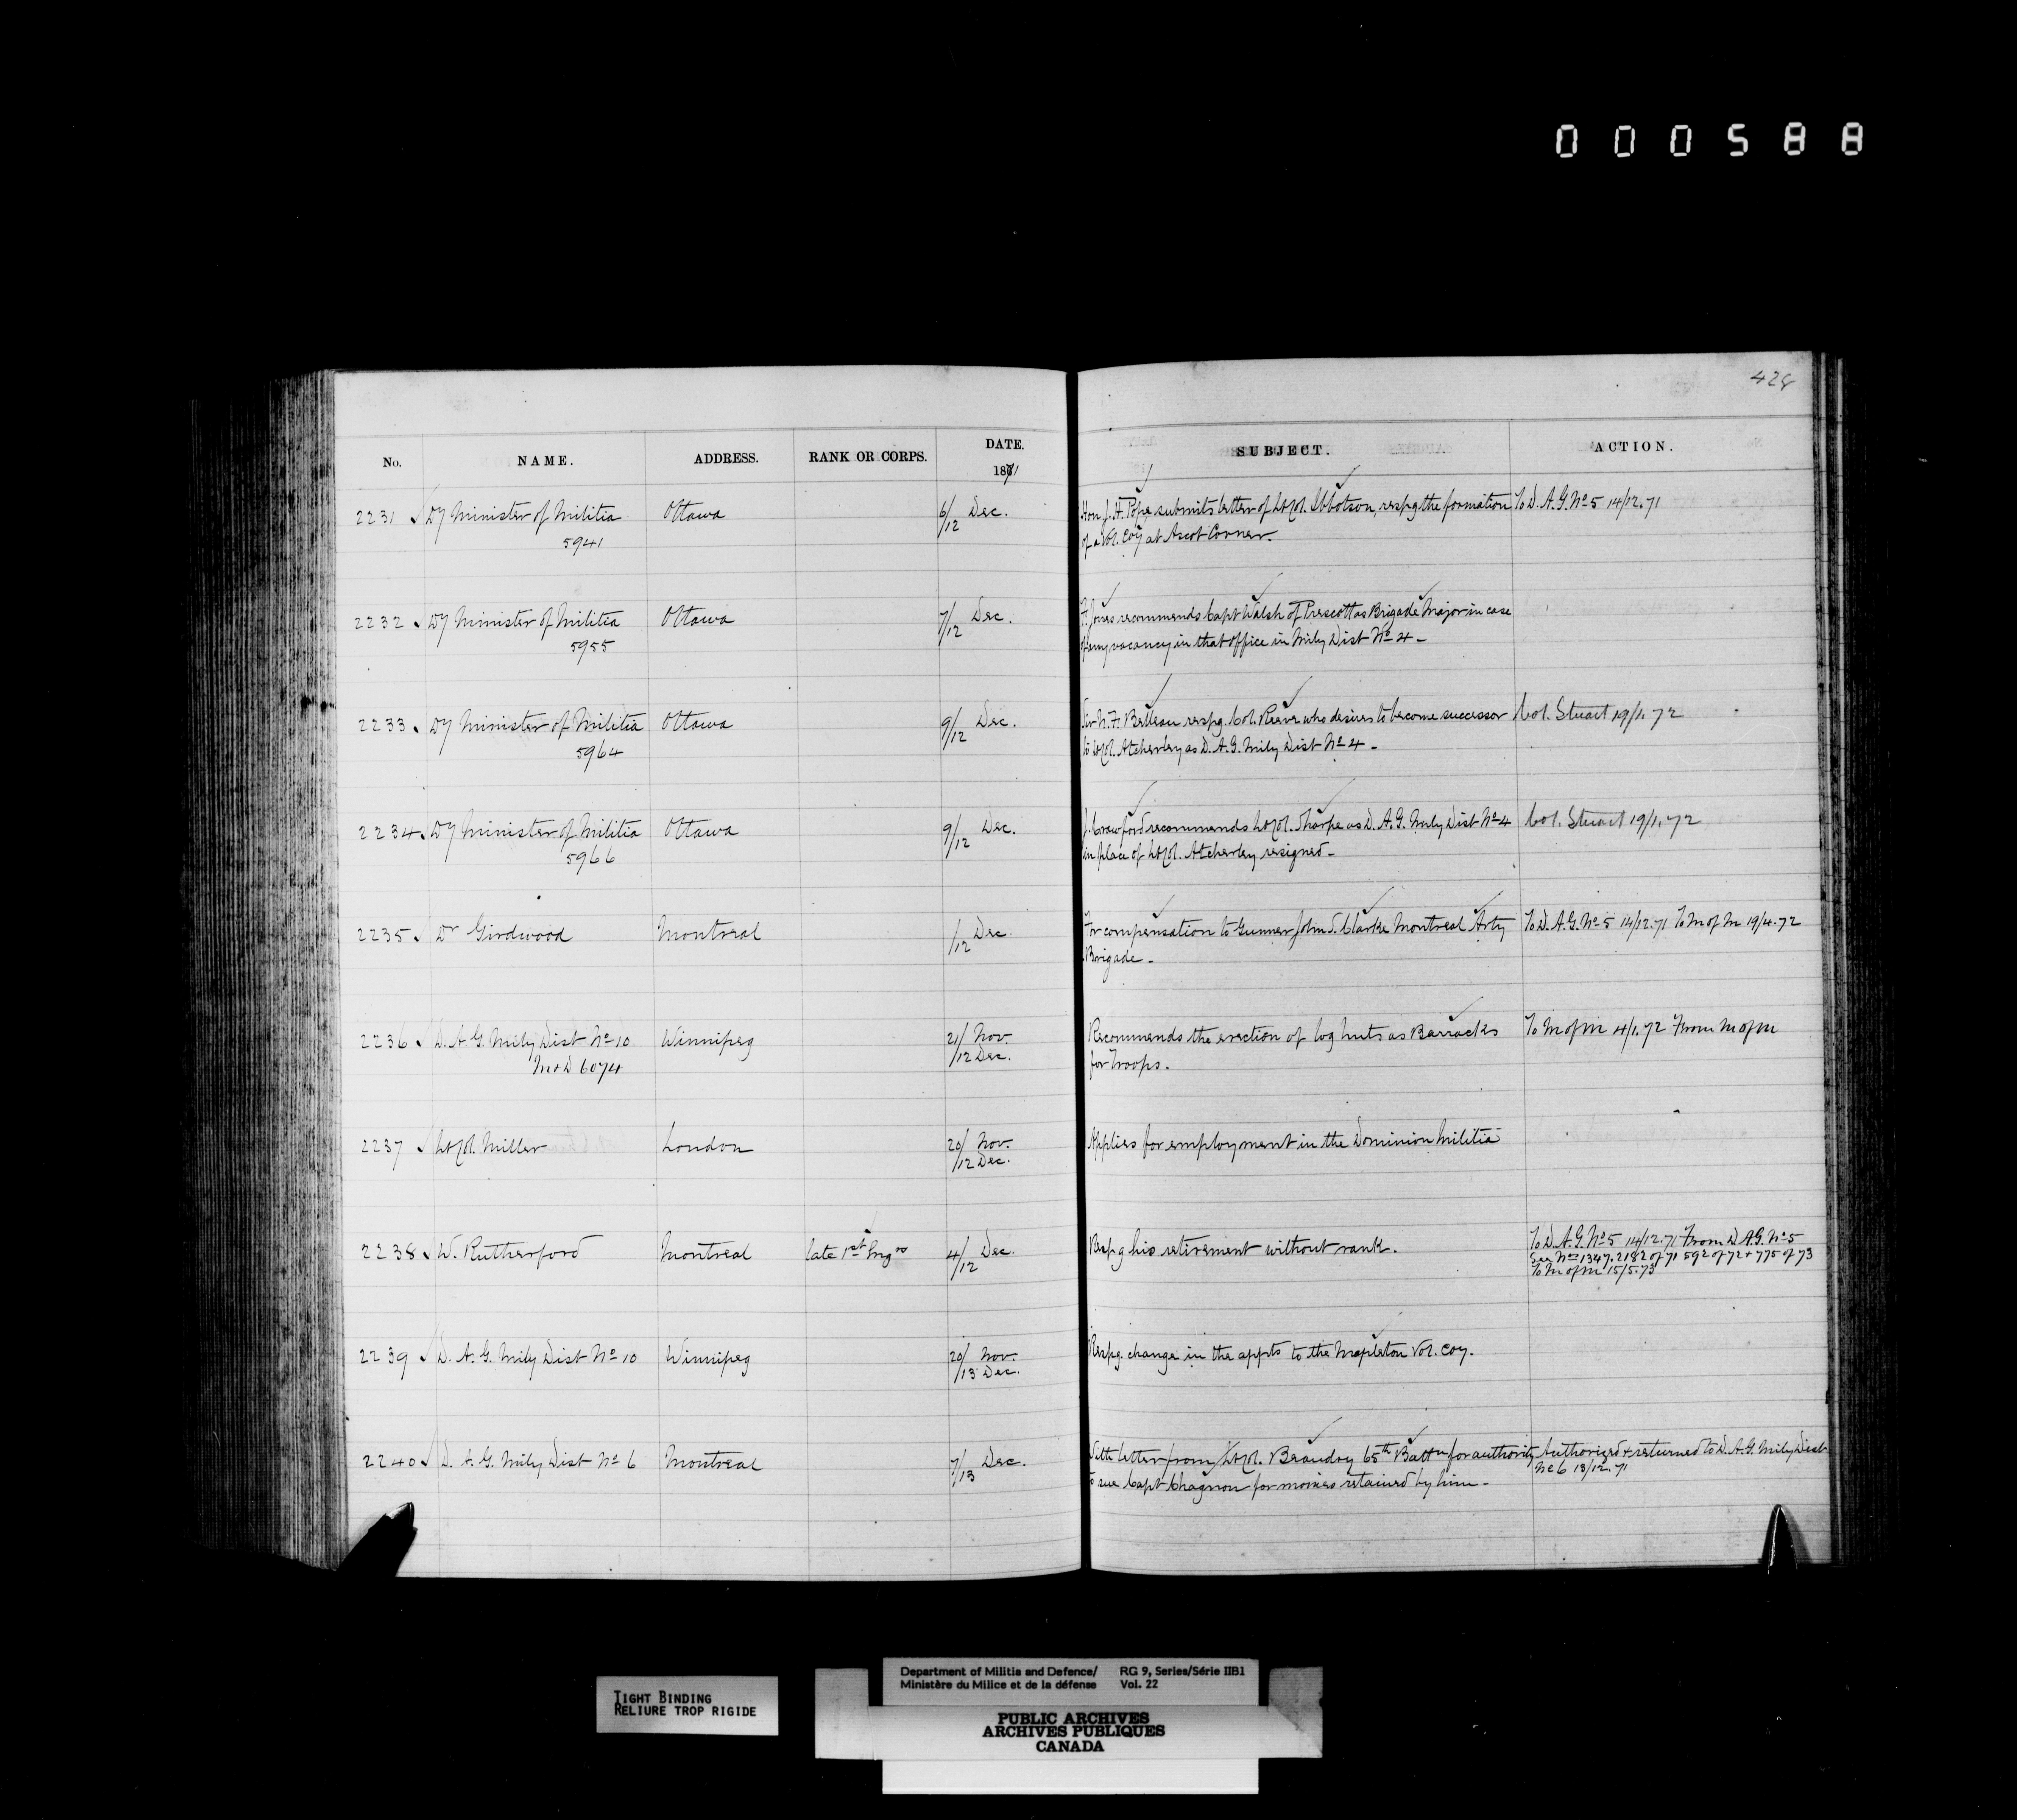 000588
428
No. NAME. ADDRESS. RANK OR CORPS. DATE. 1871 SUBJECT. ACTION.
2231 Dy Minister of Militia Ottawa 6/12 Dec. Hon. J. H. Pope submits letter of Lt Col. Ibbotson, respg the formation To D. A. G. No 5 14/12.71
5941 of a Vol. Coy at Ascot Corner.
2232 Dy Minister of Militia Ottawa 7/12 Dec. F. Jones recommends Capt Walsh of Prescott as Brigade Major in case
5955 of any vacancy in that office in Mily Dist No 4 -
2233 Dy Minister of Militia Ottawa 9/12 Dec. Sir N. F. Belleau respg. Col. Reeve who desires to become successor Col. Stuart 19/1.72
5964 to Lt Col. Atcherley as D. A. G. Mily Dist No 4 -
2234 Dy Minister of Militia Ottawa 9/12 Dec. J. Crawford recommends Lt Col. Sharpe as D. A. G. Mily Dist No 4 Col. Stuart 19/1.72
5966 in place of Lt Col. Atcherley resigned -
2235 Dr Girdwood Montreal /12 Dec. For compensation to Gunner John S. Clarke Montreal Arty To D. A. G. No 5 14/12.71 To M of M 19/4.72
Brigade -
2236 D. A. G. Mily Dist No 10 Winnipeg 21/ Nov. Recommends the erection of log huts as Barracks To M of M 4/1.72 From M of M
M & D 6074 /12 Dec. for Troops.
2237 Lt Col. Miller London 20/ Nov. Applies for employment in the Dominion Militia
/12 Dec.
2238 W. Rutherford Montreal late 1st Engrs 4/12 Dec. Respg his retirement without rank. To D. A. G. No 5 14/12.71 From D. A. G. No 5
See Nos 1347, 2182 of 71 592 of 72 & 775 of 73
To M of M 15/5.73
2239 D. A. G. Mily Dist No 10 Winnipeg 20/ Nov. Respg. change in the appts to the Mapleton Vol. Coy.
/13 Dec.
2240 D. A. G. Mily Dist No 6 Montreal 7/13 Dec. With letter from Lt Col. Beaudry 65th Battn for authority Authorized & returned to D. A. G. Mily Dist
to sue Capt Chagnon for monies retained by him - No 6 13/12.71
TIGHT BINDING
RELIURE TROP RIGIDE
Department of Militia and Defence/ RG 9, Series/Série IIB1
Ministère du Milice et de la défense Vol. 22
PUBLIC ARCHIVES
ARCHIVES PUBLIQUES
CANADA